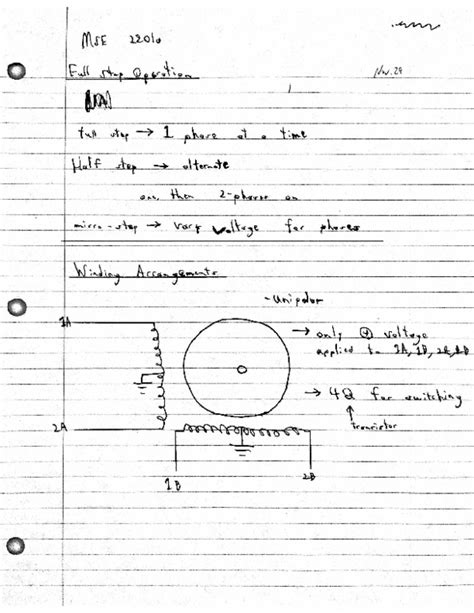 MSE 2201
Full step Operation
Nov. 29
full step → 1 phase at a time
Half step → alternate
one, then 2-phase on
micro-step → vary voltage for phases
Winding Arrangements
- unipolar
1A
→ only ⊕ voltage
applied to 1A, 1B, 2A, 2B
→ 4Q for switching
↑
transistor
2A
1B
2B